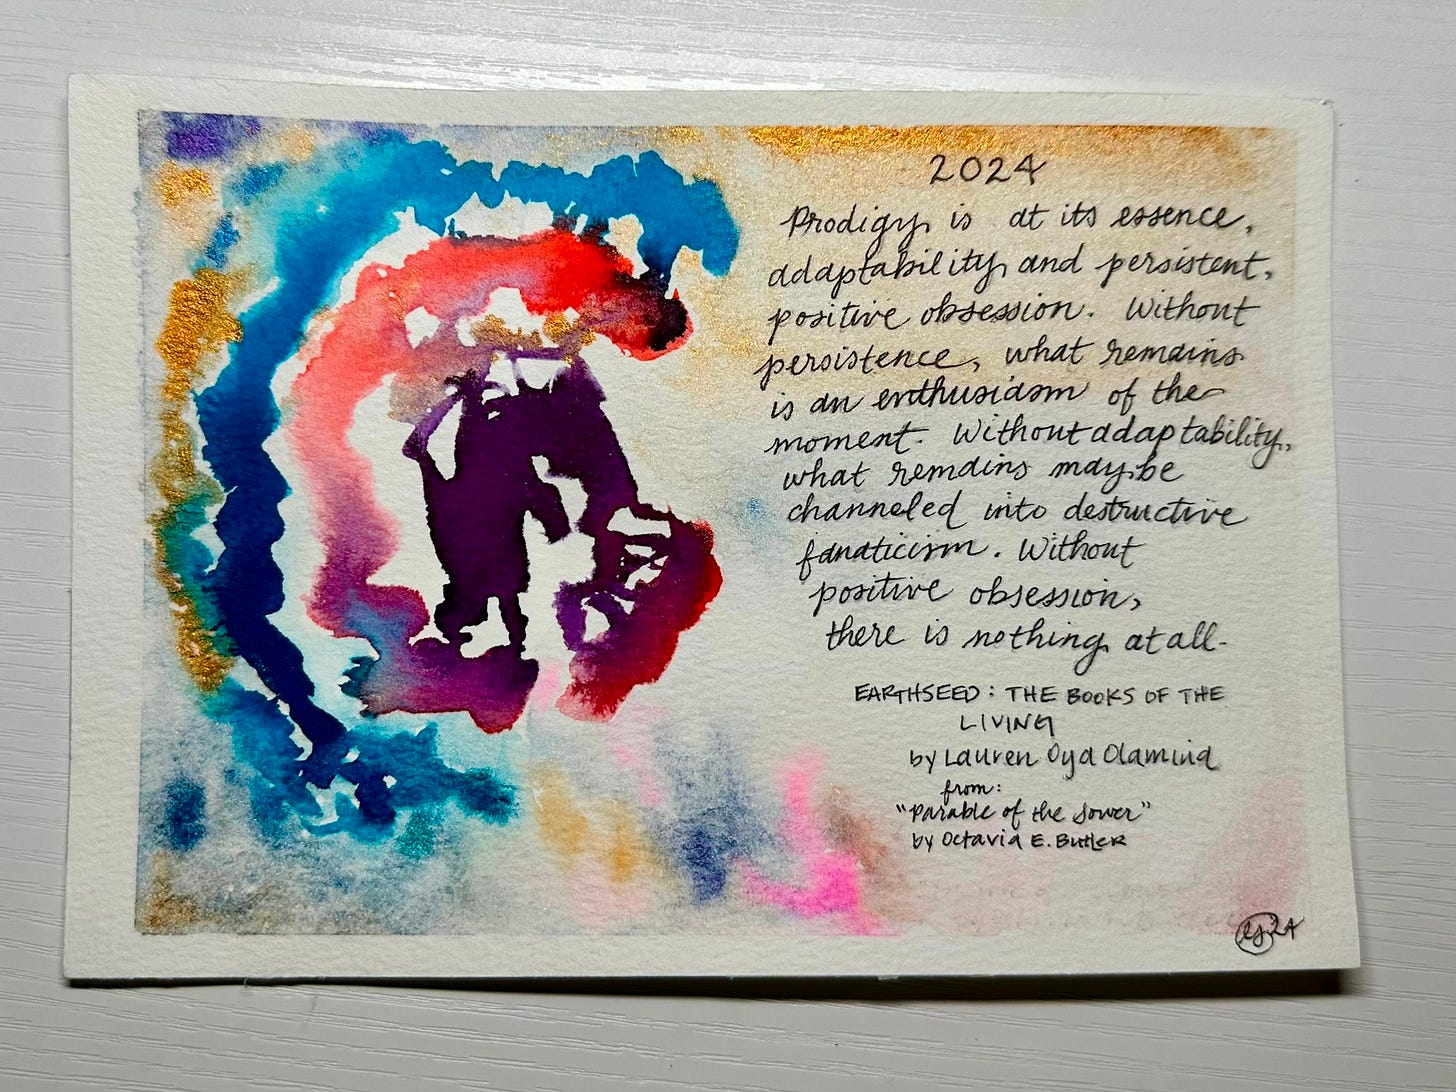 2024
Prodigy is at its essence,
adaptability and persistent,
positive obsession. Without
persistence, what remains
is an enthusiasm of the
moment. Without adaptability,
what remains may be
channeled into destructive
fanaticism. Without
positive obsession,
there is nothing at all.
EARTHSEED: THE BOOKS OF THE
LIVING
by Lauren Oya Olamina
from:
"Parable of the Sower"
by Octavia E. Butler
24